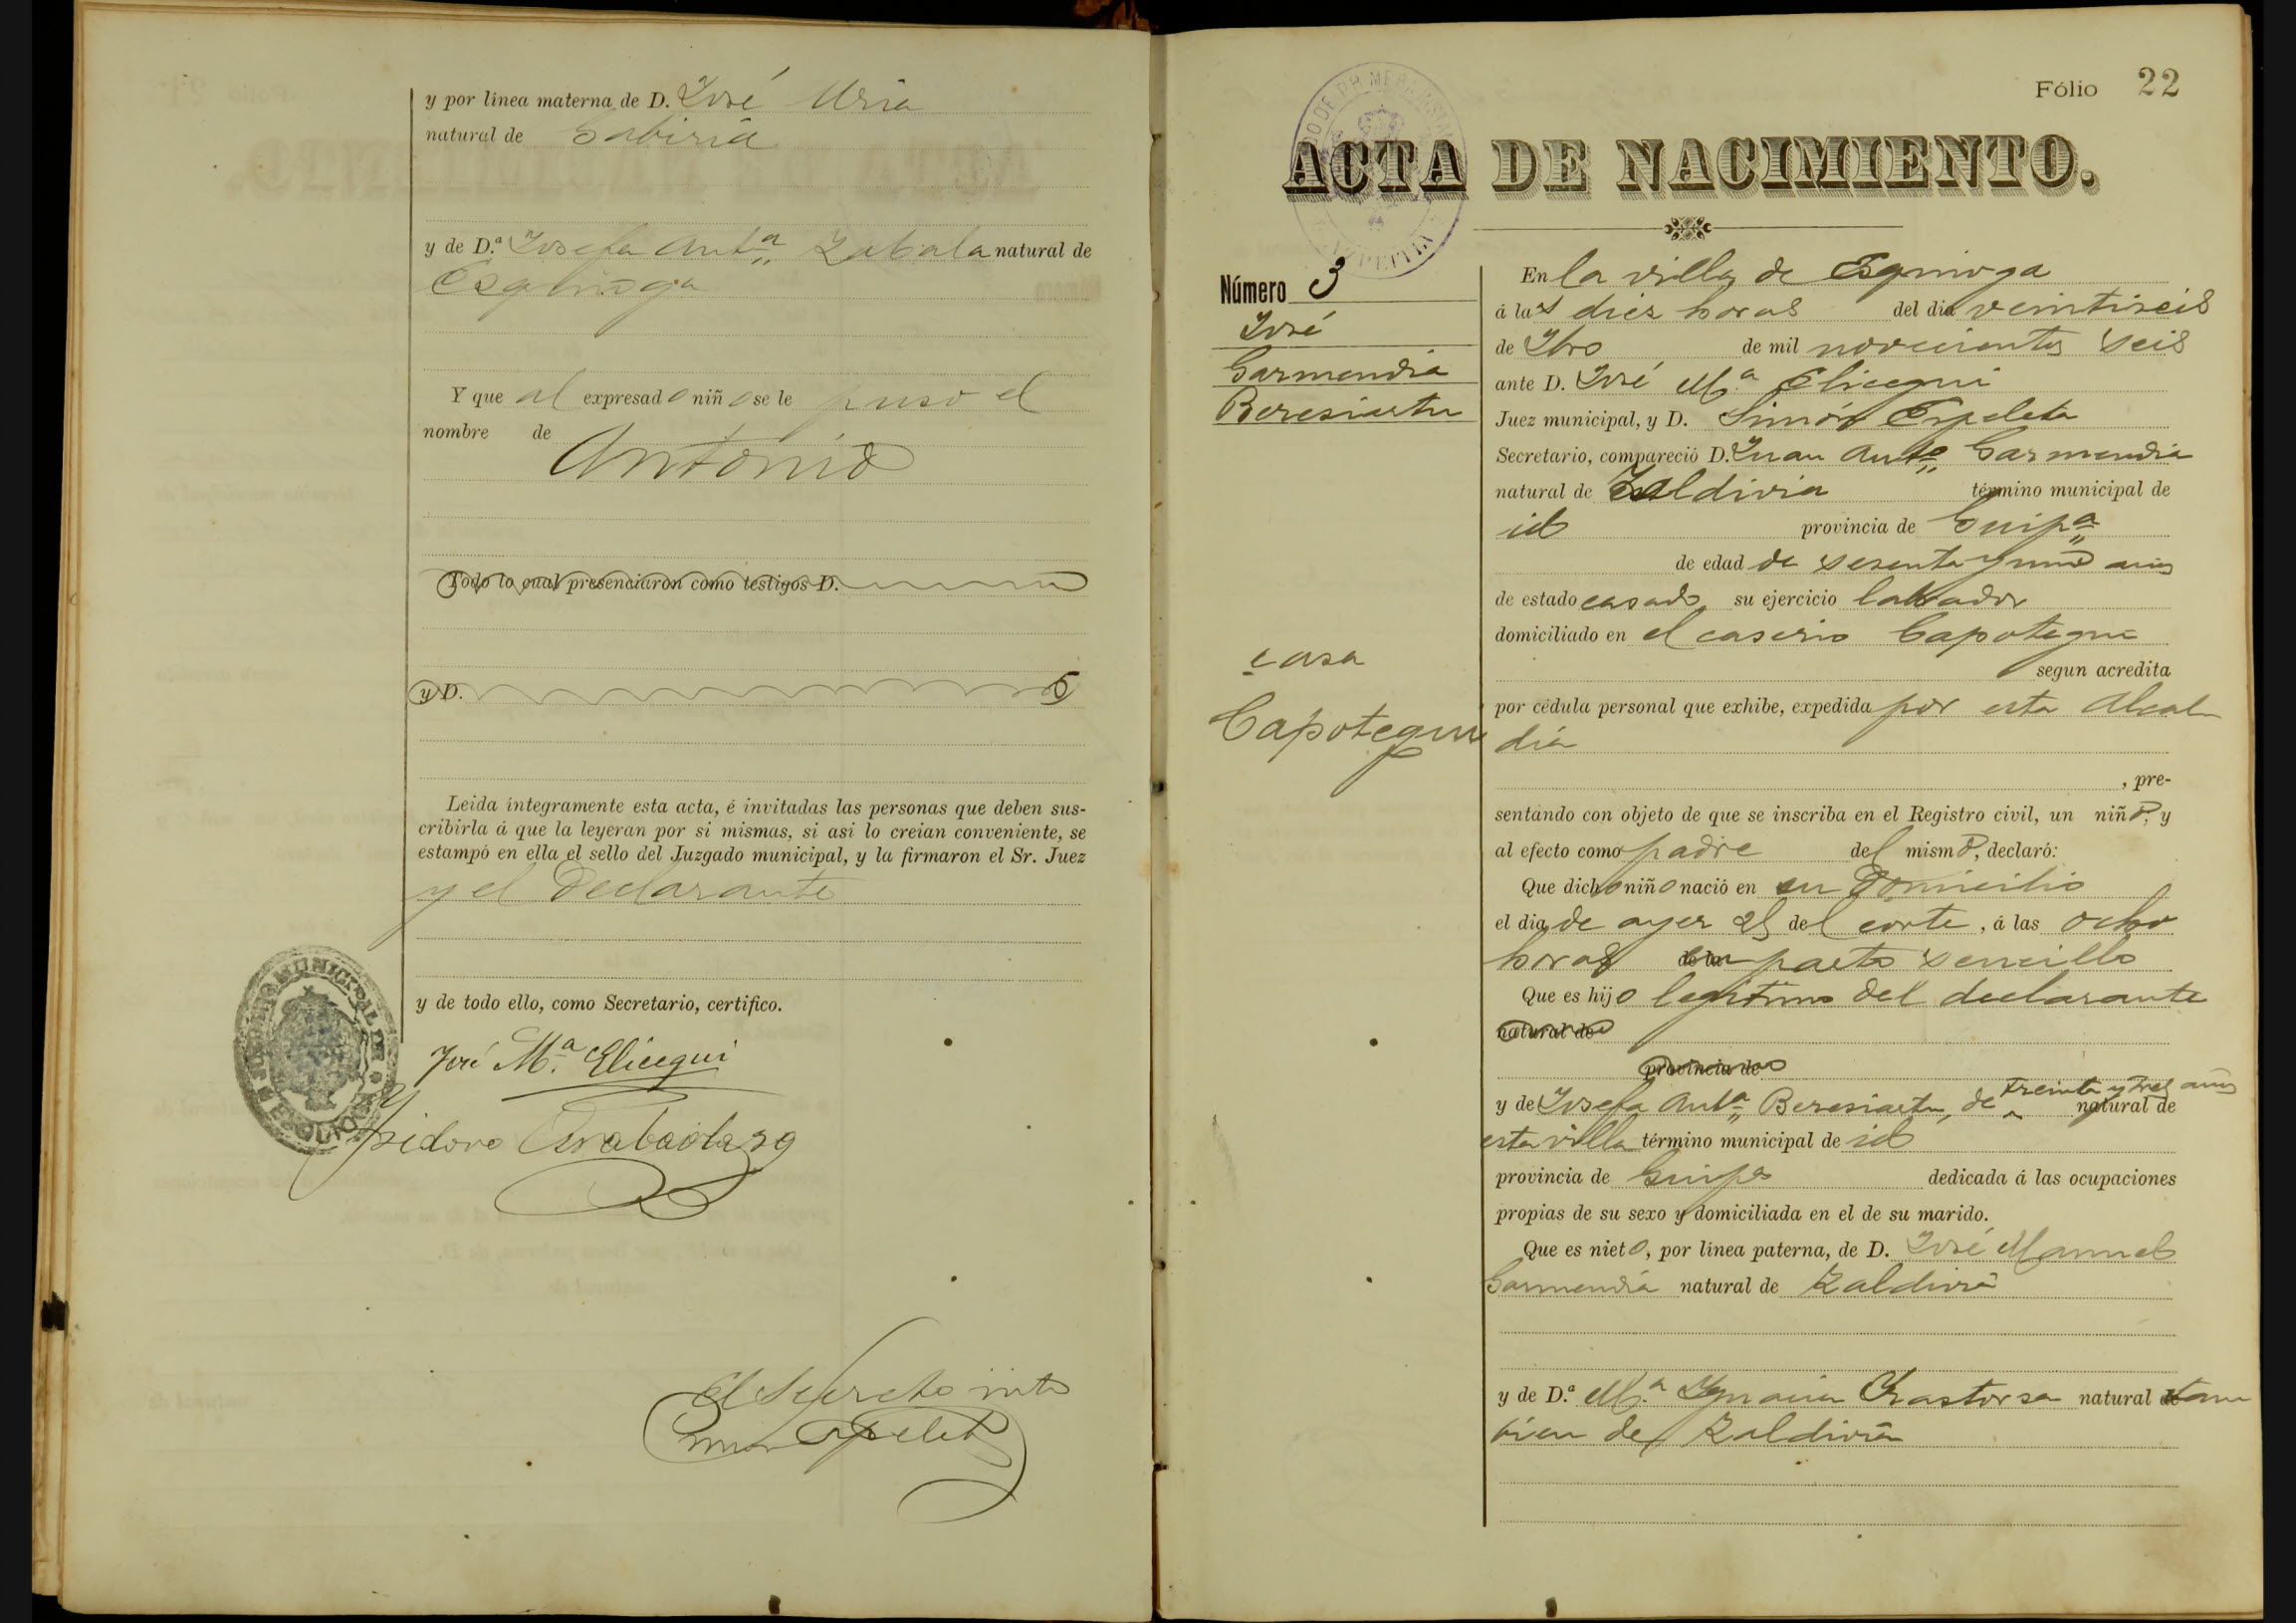 y por línea materna de D. José Uria
natural de Gabiria
y de D.ª Josefa Antª Zabala natural de
Ezquioga
Y que al expresado niño se le puso el
nombre de
Antonio
Todo lo cual presenciaron como testigos D.
y D.
Leida íntegramente esta acta, é invitadas las personas que deben sus-
cribirla á que la leyeran por si mismas, si asi lo creian conveniente, se
estampó en ella el sello del Juzgado municipal, y la firmaron el Sr. Juez
y el Declarante
y de todo ello, como Secretario, certifico.
JUZGADO MUNICIPAL DE EZQUIOGA
José Mª Elicegui
Isidoro Arabaolaza
El Secreto intº
Simon Espeleta
Fólio 22
ACTA DE NACIMIENTO.
Número 3
José
Garmendia
Beresiartu
casa
Capotegui
En la villa de Esquioga
á las diez horas del dia veintiseis
de 7bro de mil novecientos seis
ante D. José Mª Elicegui
Juez municipal, y D. Simón Espeleta
Secretario, compareció D. Juan Antº Garmendia
natural de Zaldivia término municipal de
id provincia de Guipª
de edad de sesenta y uno años
de estado casado su ejercicio labrador
domiciliado en el caserio Capotegui
segun acredita
por cédula personal que exhibe, expedida por esta Alcal
dia
, pre-
sentando con objeto de que se inscriba en el Registro civil, un niño, y
al efecto como padre del mismo, declaró:
Que dicho niño nació en su Domicilio
el dia de ayer 25 del corte, á las ocho
horas de la en parto sencillo
Que es hijo legitimo del declarante
natural de
provincia de
y de Josefa Antª Beresiartu, de treinta y tres años natural de
esta villa término municipal de id
provincia de Guipª dedicada á las ocupaciones
propias de su sexo y domiciliada en el de su marido.
Que es nieto, por línea paterna, de D. José Manuel
Garmendia natural de Zaldivia
y de D.ª Mª Ygnacia Yrastorza natural de tam
bien de Zaldivia